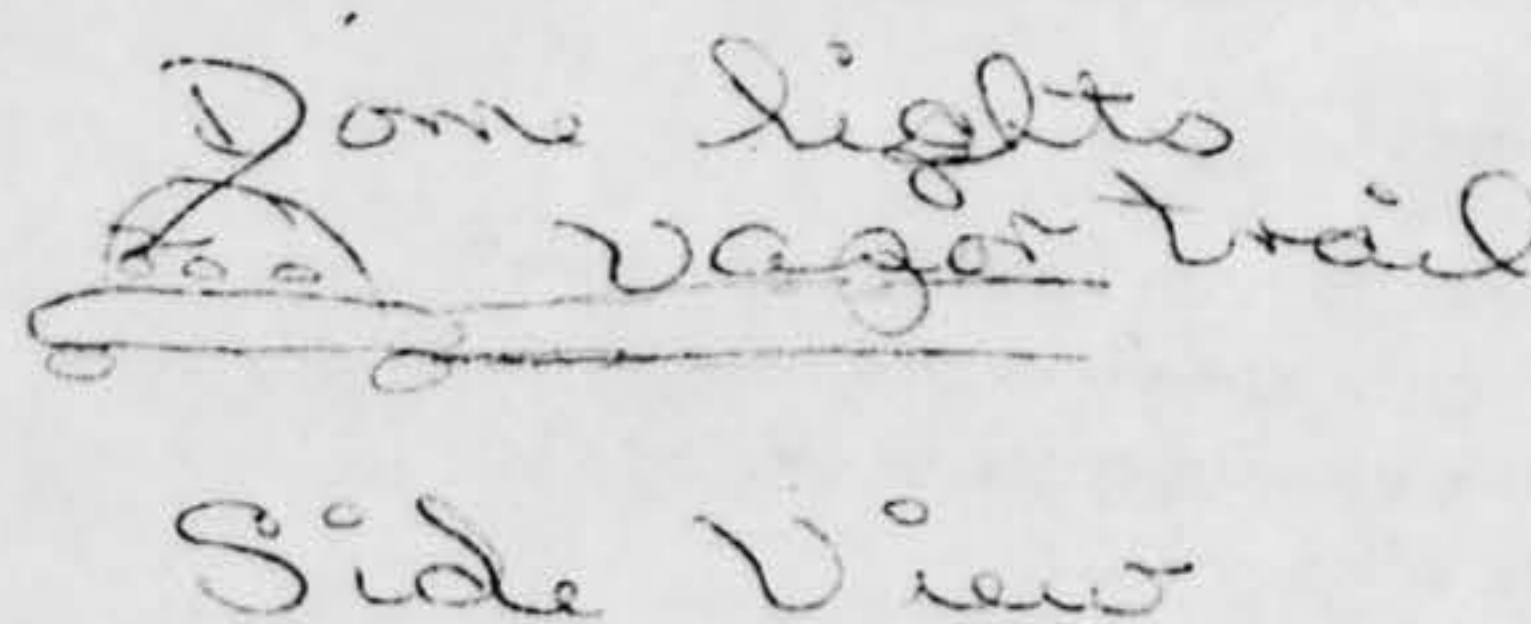 Dome lights
vapor trail
Side View